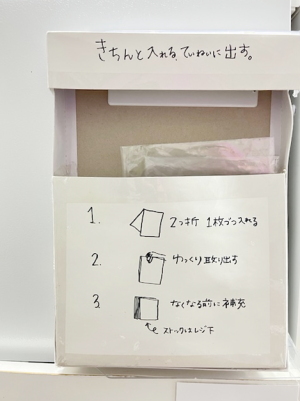 きちんと入れる、ていねいに出す。
1. 2つ折 1枚づつ入れる
2. ゆっくり取り出す
3. なくなる前に補充
ストックはレジ下